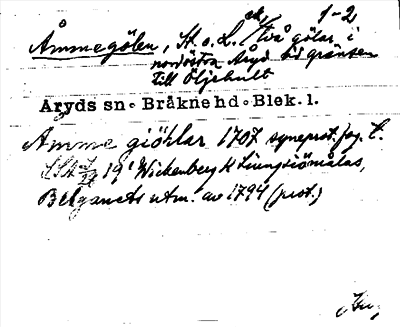 1-2
Åmmegölen, St. o. L. ek, två gölar i
nordöstra Åryd vid gränsen
till Öljehult
Åryds sn. Bräkne hd. Blek. l.
Åmme giöhlar 1707 syneprot. f.
19 Wickenberg k Liungsiömålas,
Belganets utm. av 1794 (prot.)